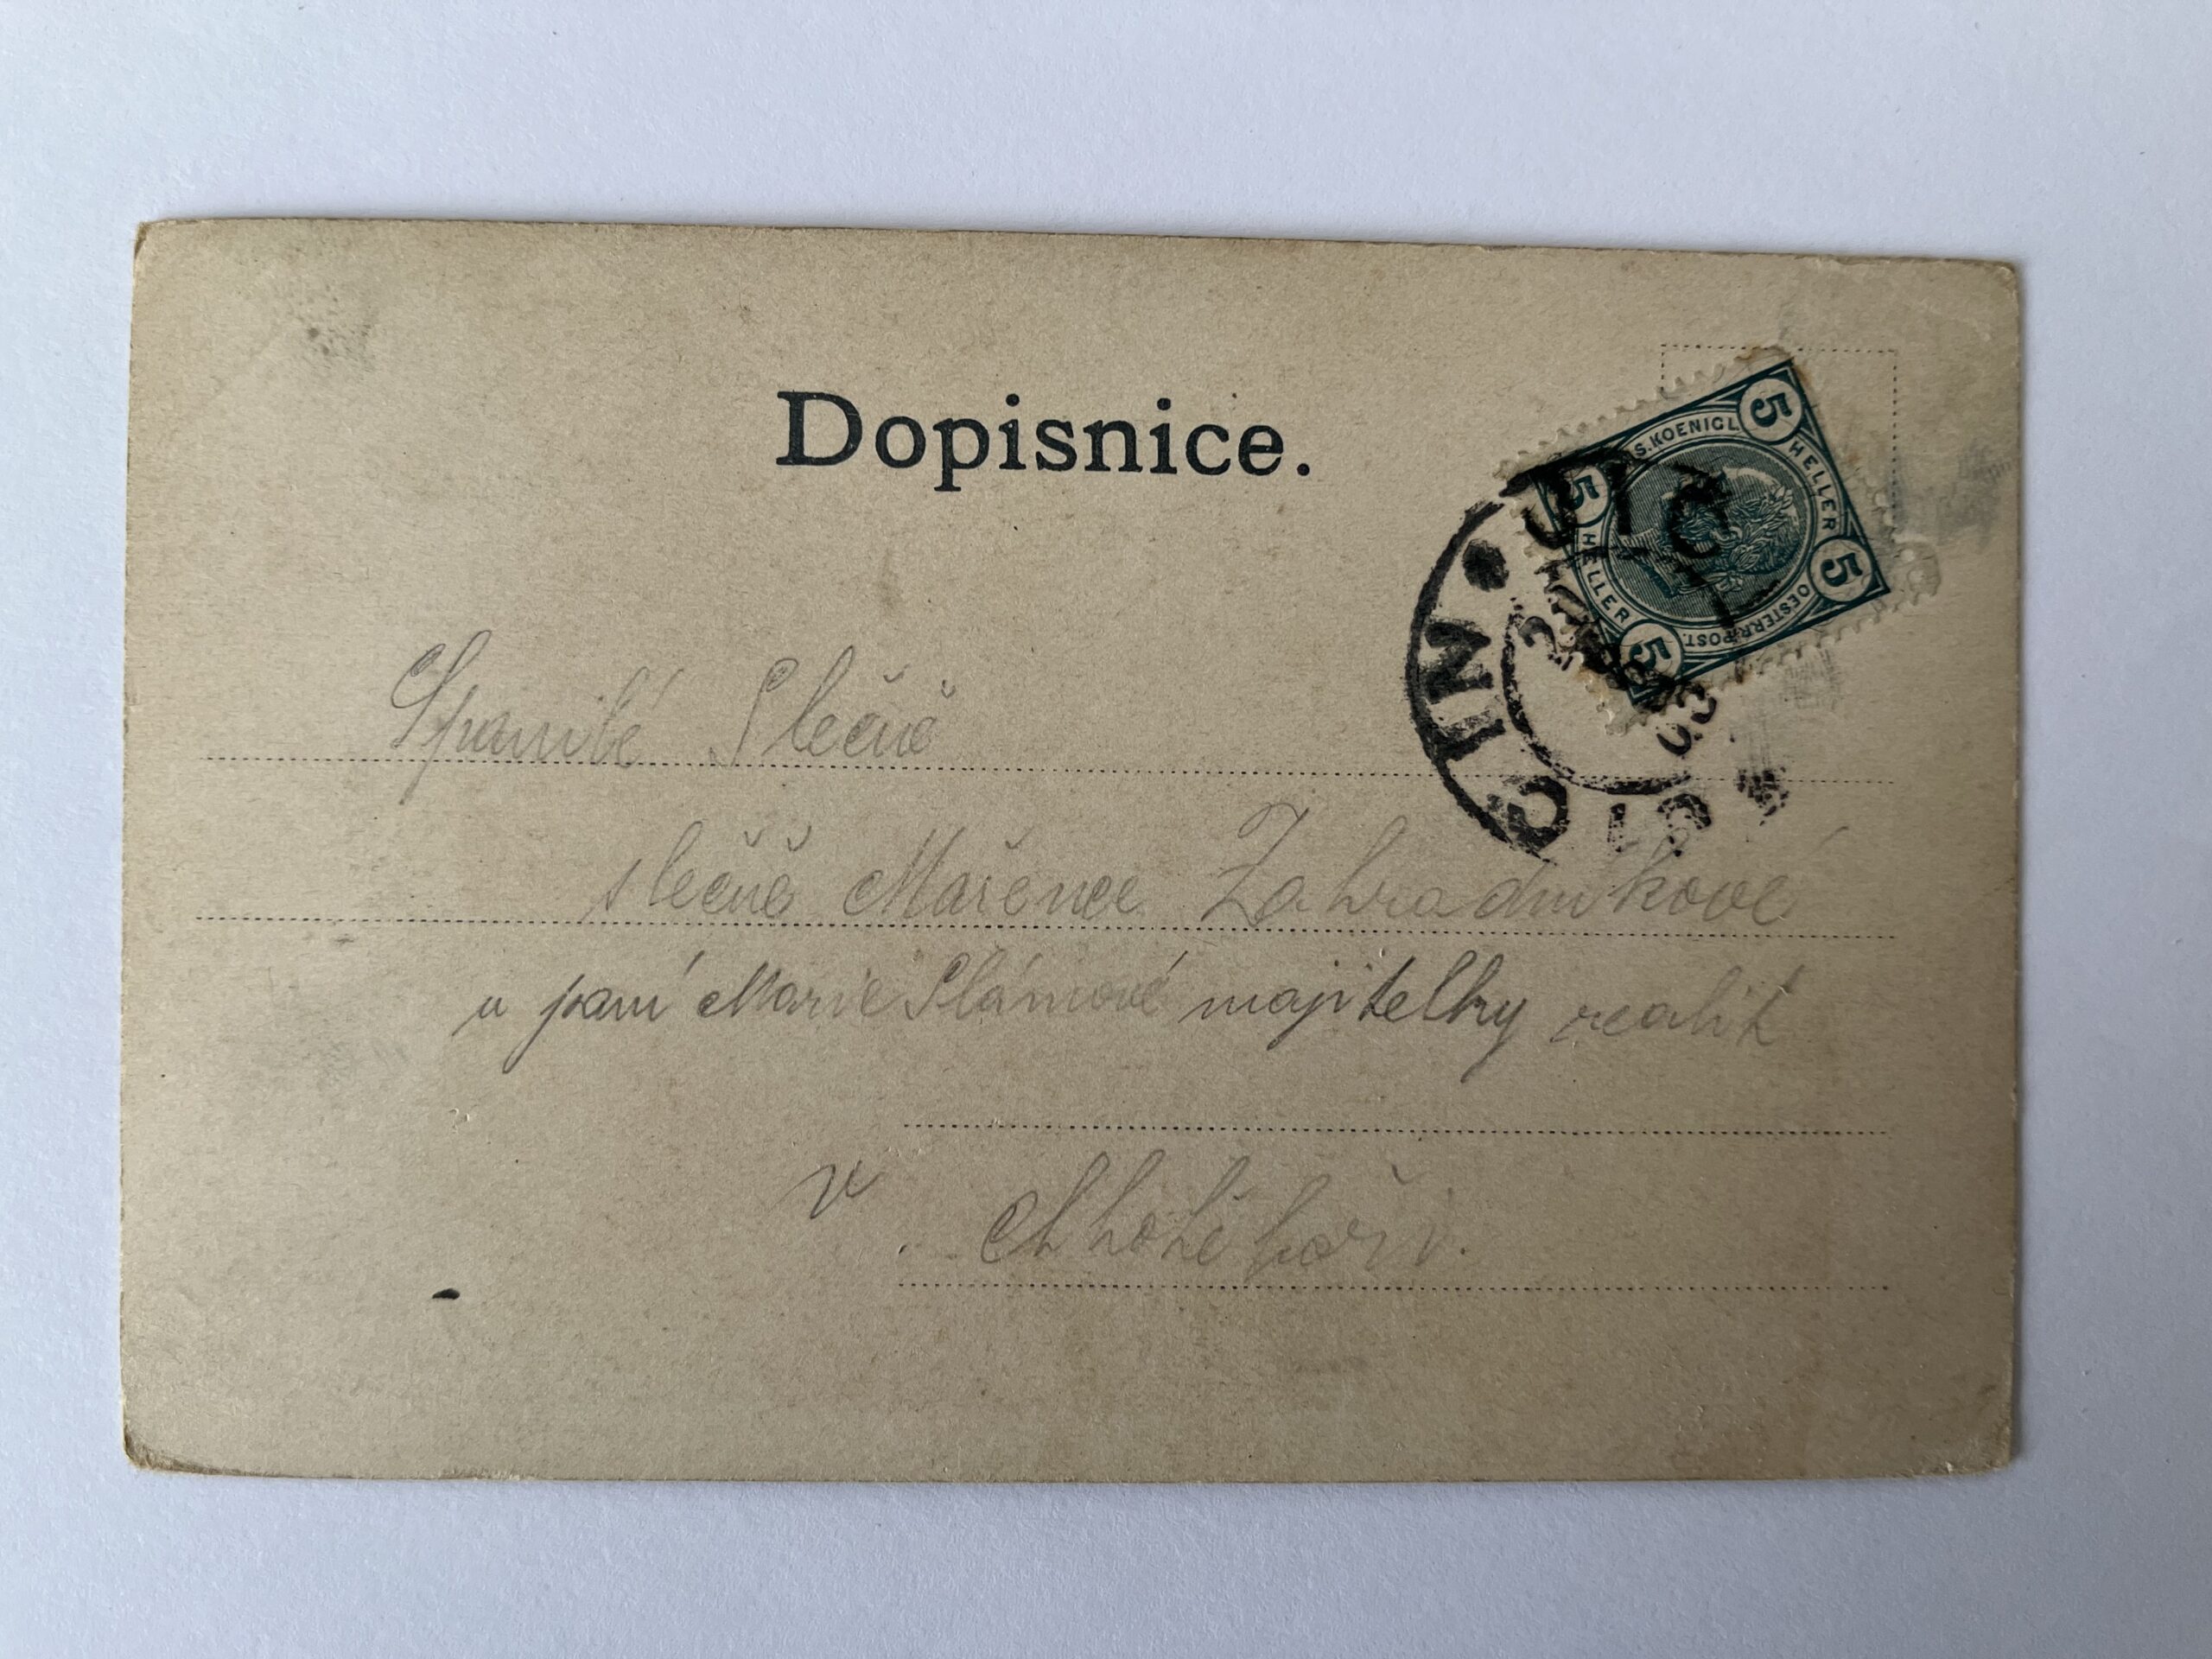 Dopisnice.
5 HELLER 5
S. KOENIGL.
5 HELLER 5
OESTERR. POST.
JIČ
ČIN
03
JIČ
Spanilé Slečně
slečně Mařence Zahradníkové
u paní Marie Slámové majitelky realit
v Chhotěboři.